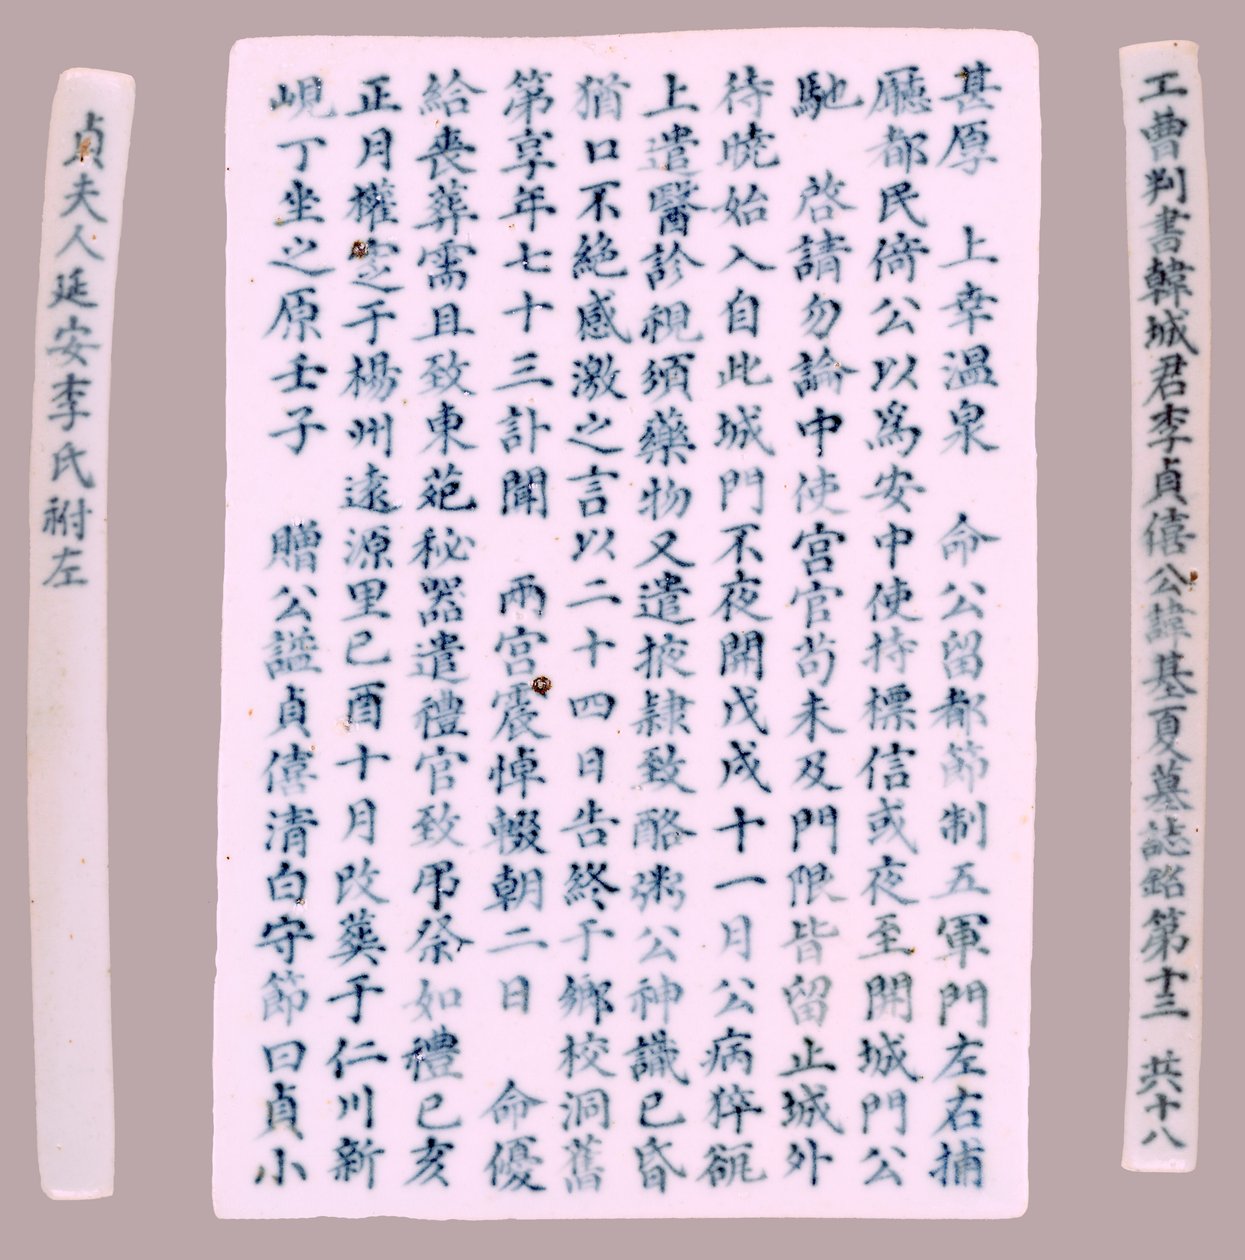 工曹判書韓城君李貞僖公諱基夏墓誌銘第十三 共十八
甚厚 上幸溫泉 命公留都節制五軍門左右捕
廳都民倚公以爲安中使持標信或夜至開城門公
馳 啓請勿論中使宮官苟未及門限皆留止城外
待曉始入自此城門不夜開戊戌十一月公病猝𤭁
上遣醫診視須藥物又遣掖隷致酪粥公神識已昏
猶口不絶感激之言以二十四日告終于鄕校洞舊
第享年七十三訃聞 兩宮震悼輟朝二日 命優
給喪葬需且致東苑秘器遣禮官致弔祭如禮已亥
正月權窆于楊州遠源里已酉十月改葬于仁川新
峴丁坐之原壬子 贈公謚貞僖淸白守節曰貞小
貞夫人延安李氏祔左